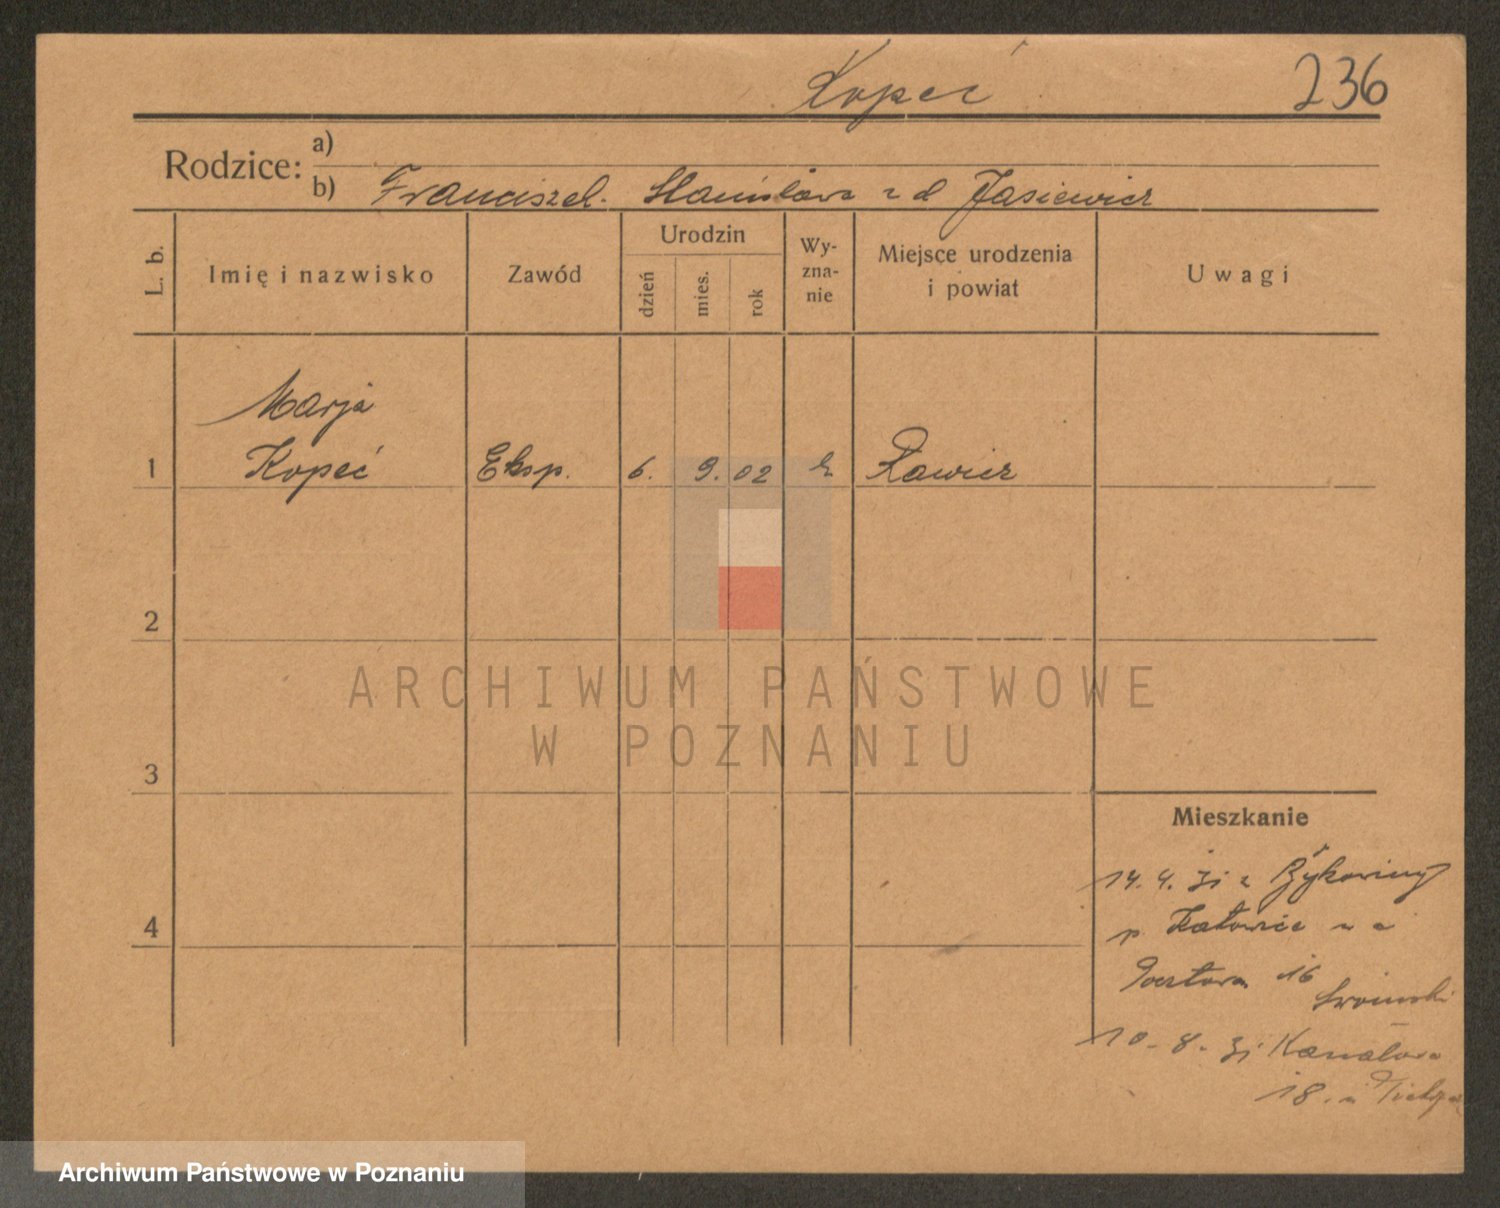 Kopeć 236
Rodzice: a)
b) Franciszek Stanisława z d Jasiewicz
L. b.
Imię i nazwisko
Zawód
Urodzin
dzień
mies.
rok
Wy-
zna-
nie
Miejsce urodzenia
i powiat
Uwagi
Marja
1 Kopeć Eksp. 6. 9. 02 k Rawicz
2
3
4
Mieszkanie
14.4.31 z
p. Katowice
16
10-8-31 Kanałowa
18.
ARCHIWUM PAŃSTWOWE
W POZNANIU
Archiwum Państwowe w Poznaniu